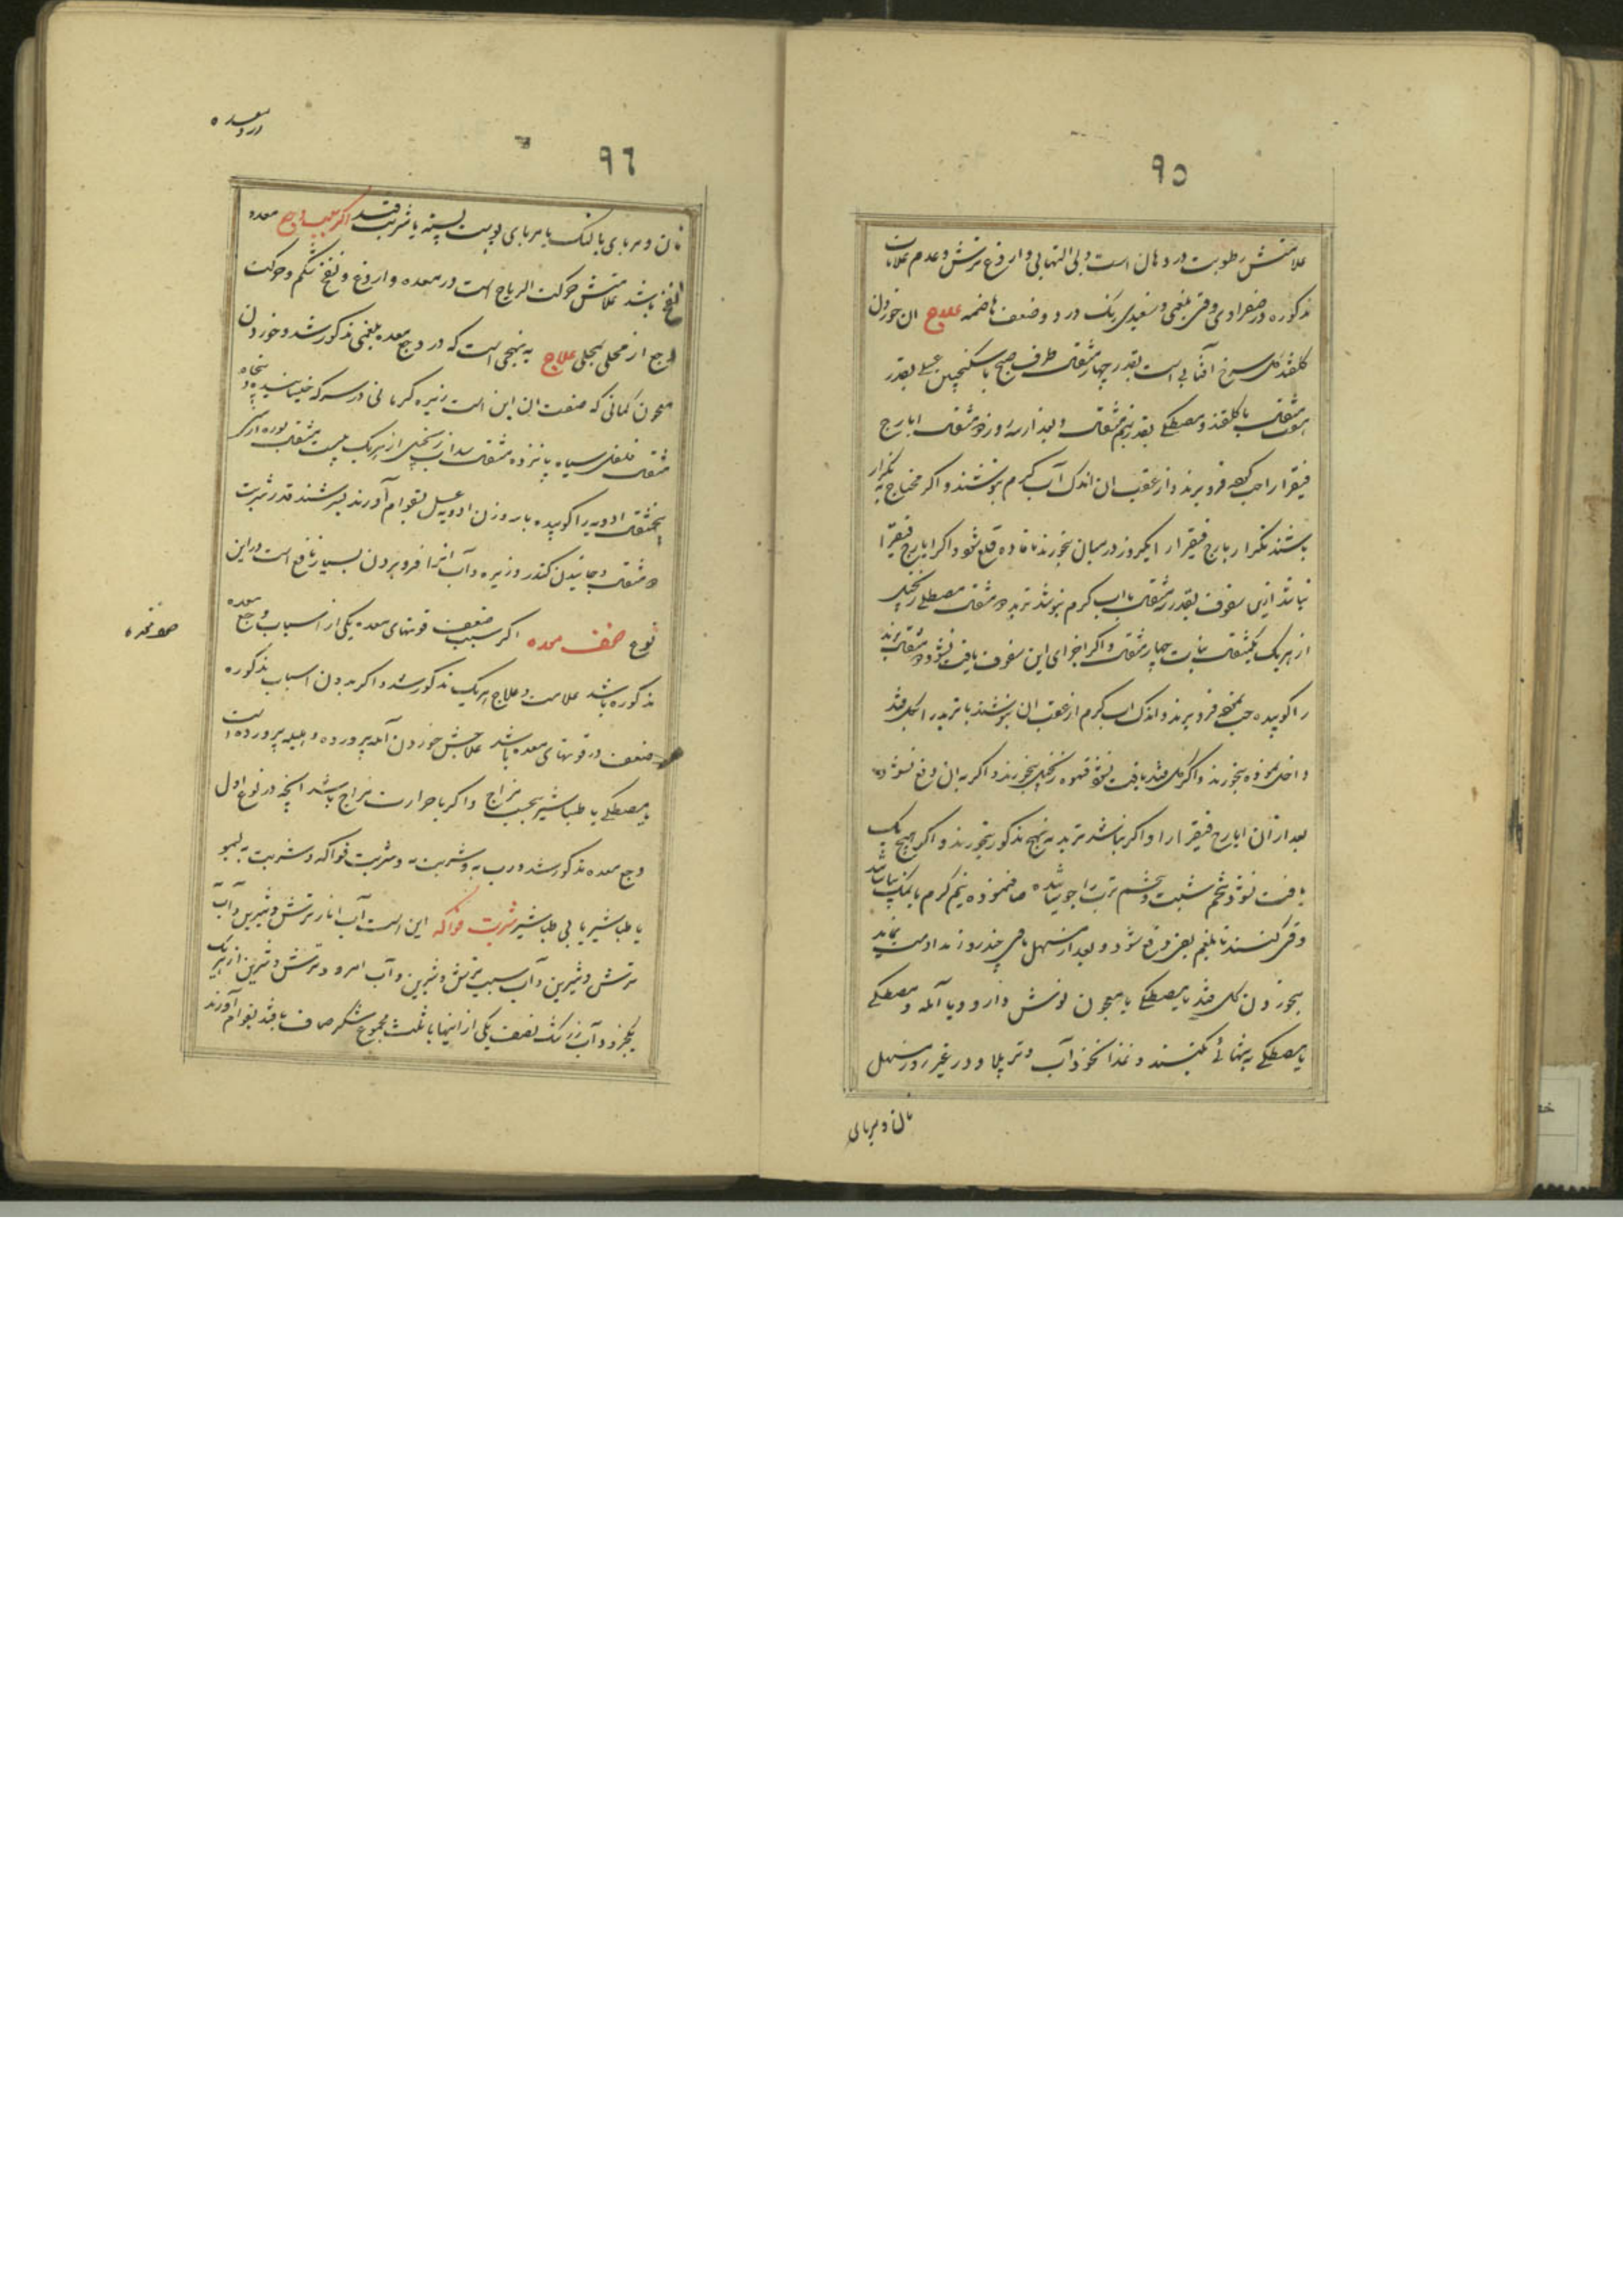 ۹۵
علامتش رطوبت در دهان است و بی التهابی و اروغ ترش و عدم علامات
مذکوره در صفراوی و قی بلغمی و سفیدی رنک در د و ضعف هاضمه علاج ان خوردن
کلقند کل سرخ آفتابی است بقدر چهار مثقال طرف صبح با سکنجبین عسلی بقدر
مثقال با کلقند و مصطکی بقدر نیم مثقال و بعد از سه روز دو مثقال ایارج
فیقرا را حب کرده فرو برند و از عقب ان اندک آب کرم بنوشند و اکر محتاج به تکرار
باشند تکرار ایارج فیقرا را یکروز در میان بخورند تا ماده قلع شود و اکر ایارج فیقرا
نباشد ازین سفوف بقدر سه مثقال با اب کرم بنوشند تربد دو مثقال مصطکی زنجبیل
از هر یک یکمثقال نبات چهار مثقال و اکر اجزای این سفوف یافت نشود دو مثقال تربد
را کوبیده حب نموده فرو برند و اندک اب کرم از عقب ان بنوشند یا تربد را بکل قند
داخل نموده بخورند و اکر کل قند یافت نشود قهوه زنجبیل بخورند و اکر به ان دفع نشود
بعد از ان ایارج فیقرا را و اکر نباشد تربد به نهج مذکور بخورند و اکر هیچ یک
یافت نشود تخم شبت و تخم ترب را جوشانیده صاف نموده نیم کرم با نمک بیاشامند
و قی کنند تا بلغم بقی دفع شود و بعد از مسهل یا قی چند روز مداومت نماید
بخوردن کل قند با مصطکی یا معجون نوش دارو و یا آمله و مصطکی
یا مصطکی به تنهائی کنند و غذا نخود آب و تر پلاو و در غیر روز مسهل
نان و مربای
درد معده
۹۶
نان و مربای بالنک یا مربای پوست پسته یا شربت قند اکر سبب وجع معده
نفخ باشد علامتش حرکت الریاح است در معده و اروغ و نفخ شکم و حرکت
وجع از محلی بمحلی علاج به نهجی است که در وجع معده بلغمی مذکور شد و خوردن
معجون کمانی که صنعت ان این است زیره کرمانی در سرکه خیسانیده پنجاه
مثقال فلفل سیاه پانزده مثقال سداب زنجبیل از هر یک بیست مثقال بوره ارمنی
پنجمثقال ادویه را کوبیده با سه وزن ادویه عسل بقوام آورند بسرشند قدر شربت
دو مثقال و جائیدن کندر و زیره و آب انرا فرو بردن بسیار نافع است در این
نوع ضعف معده اکر سبب ضعف قوتهای معده یکی از اسباب وجع معده
مذکوره باشد علامت و علاج هر یک مذکور شد و اکر بدون اسباب مذکوره
ضعف در قوتهای معده باشد علاجش خوردن آمله پرورده و هلیله پرورده است
با مصطکی یا طباشیر بحسب مزاج و اکر با حرارت مزاج باشد انچه در نوع اول
وجع معده مذکور شد و رب به و شربت به و شربت فواکه و شربت به لیمو
با طباشیر یا بی طباشیر شربت فواکه این است آب انار ترش و شیرین و آب به
ترش و شیرین و آب سیب ترش و شیرین و آب امرود ترش و شیرین از هر یک
یکجزو و آب زرشک نصف یکی از اینها با ثلث مجموع شکر صاف یا قند بقوام آورند
ضعف معده